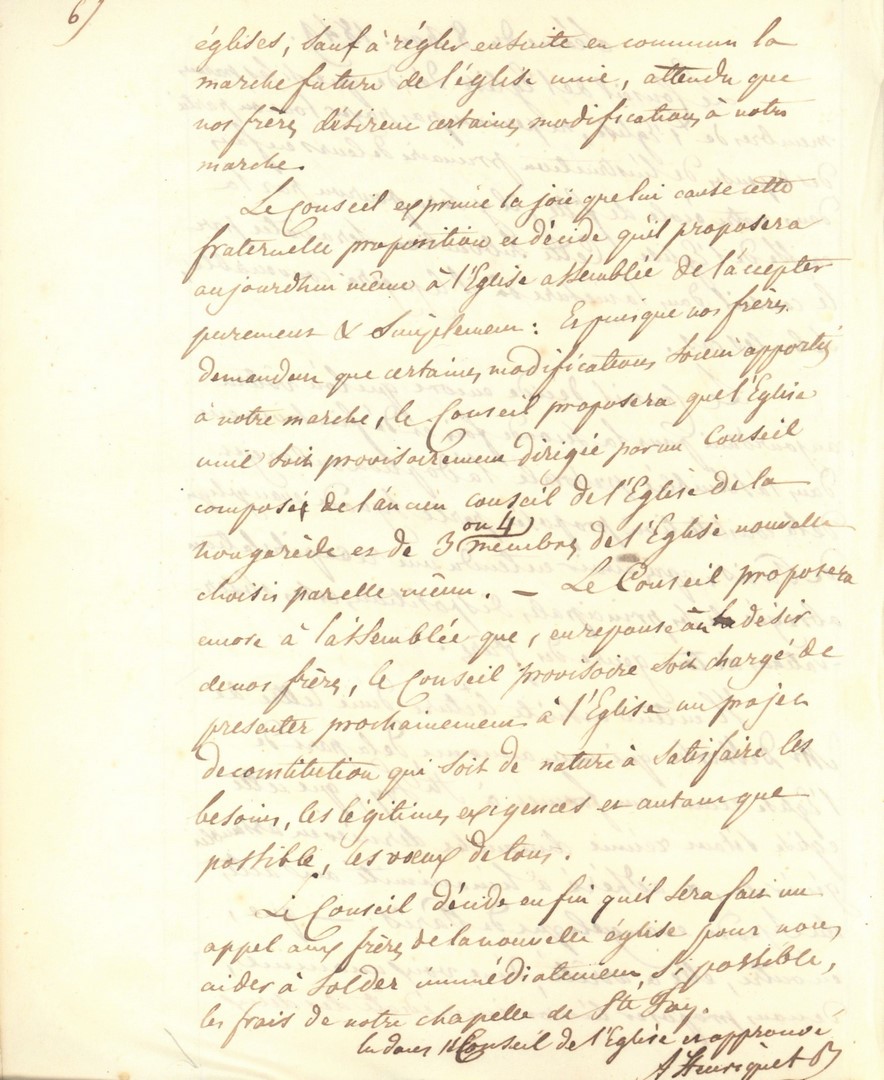 6)
églises, sauf à régler ensuite en commun la
marche future de l'église unie, attendu que
nos frères désirent certaines modifications à notre
marche.
Le Conseil exprime la joie que lui cause cette
fraternelle proposition et décide qu'il proposera
aujourdhui même à l'Eglise assemblée de l'accepter
purement & simplement: Et puisque nos frères
demandent que certaines modifications soient apportées
à notre marche, le Conseil proposera que l'Eglise
unie soit provisoirement dirigée par un Conseil
composé de l'ancien conseil de l'Eglise de la
nougarède et de 3 ou 4 membres de l'Eglise nouvelle
choisis par elle même. — Le Conseil proposera
encore à l'assemblée que, en réponse au désir
de nos frères, le Conseil provisoire soit chargé de
présenter prochainement à l'Eglise un projet
de constitution qui soit de nature à satisfaire les
besoins, les légitimes exigences et autant que
possible, les vœux de tous.
Le Conseil décide enfin qu'il sera fait un
appel aux frères de la nouvelle église pour nous
aider à solder immédiatement, si possible,
les frais de notre chapelle de Ste Foy.
lu dans le Conseil de l'Eglise et approuvé
A Henriquet